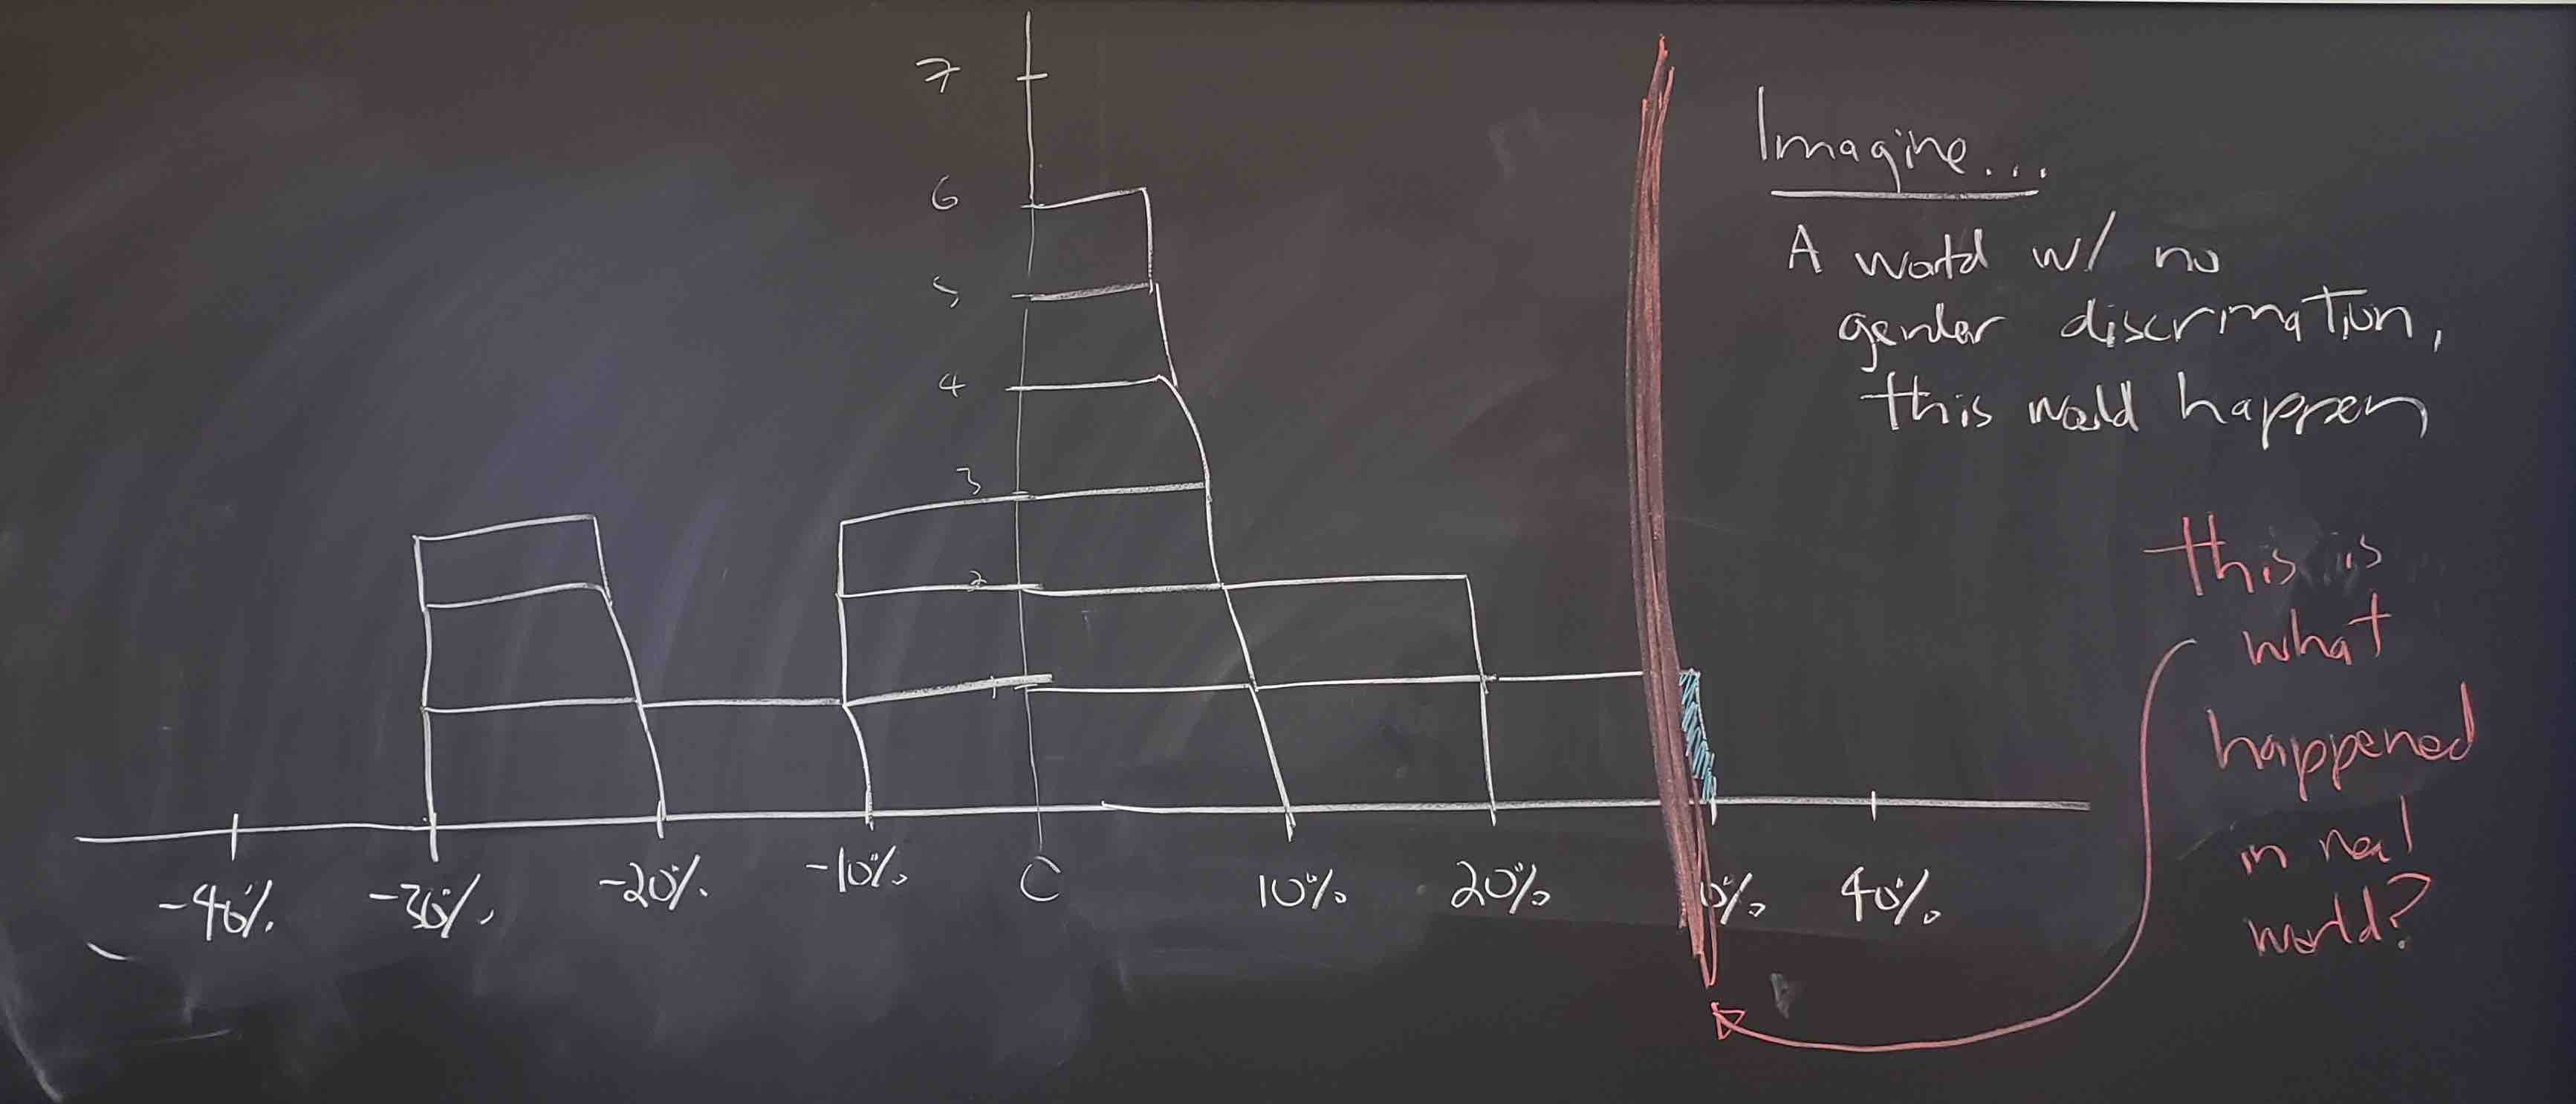 7
6
5
4
3
2
1
-40%
-30%
-20%
-10%
0
10%
20%
0%
40%
Imagine...
A world w/ no
gender discrimination,
this would happen
this is
what
happened
in real
world?